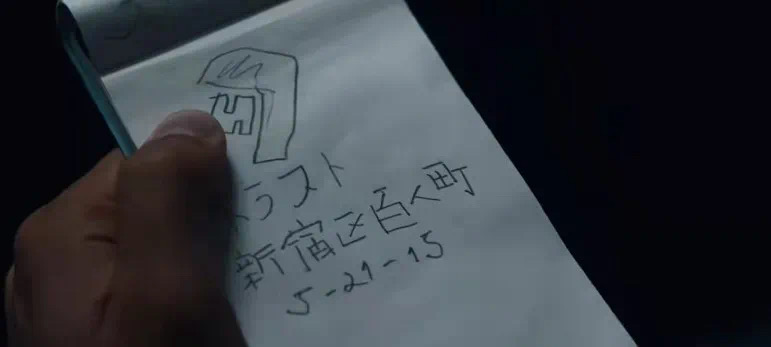 ラスト
新宿区百人町
5-21-15